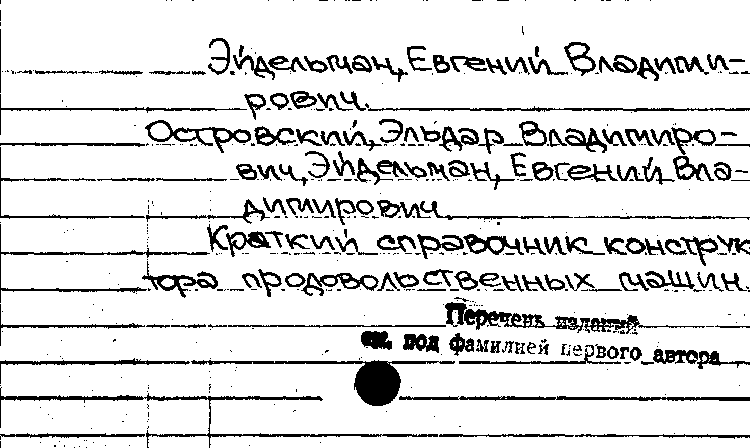 Эйдельман, Евгений Владими-
рович.
Островский, Эльдар Владимиро-
вич, Эйдельман, Евгений Вла-
димирович.
Краткий справочник конструк
тора продовольственных машин.
Перечень изданий
см. под фамилией первого автора